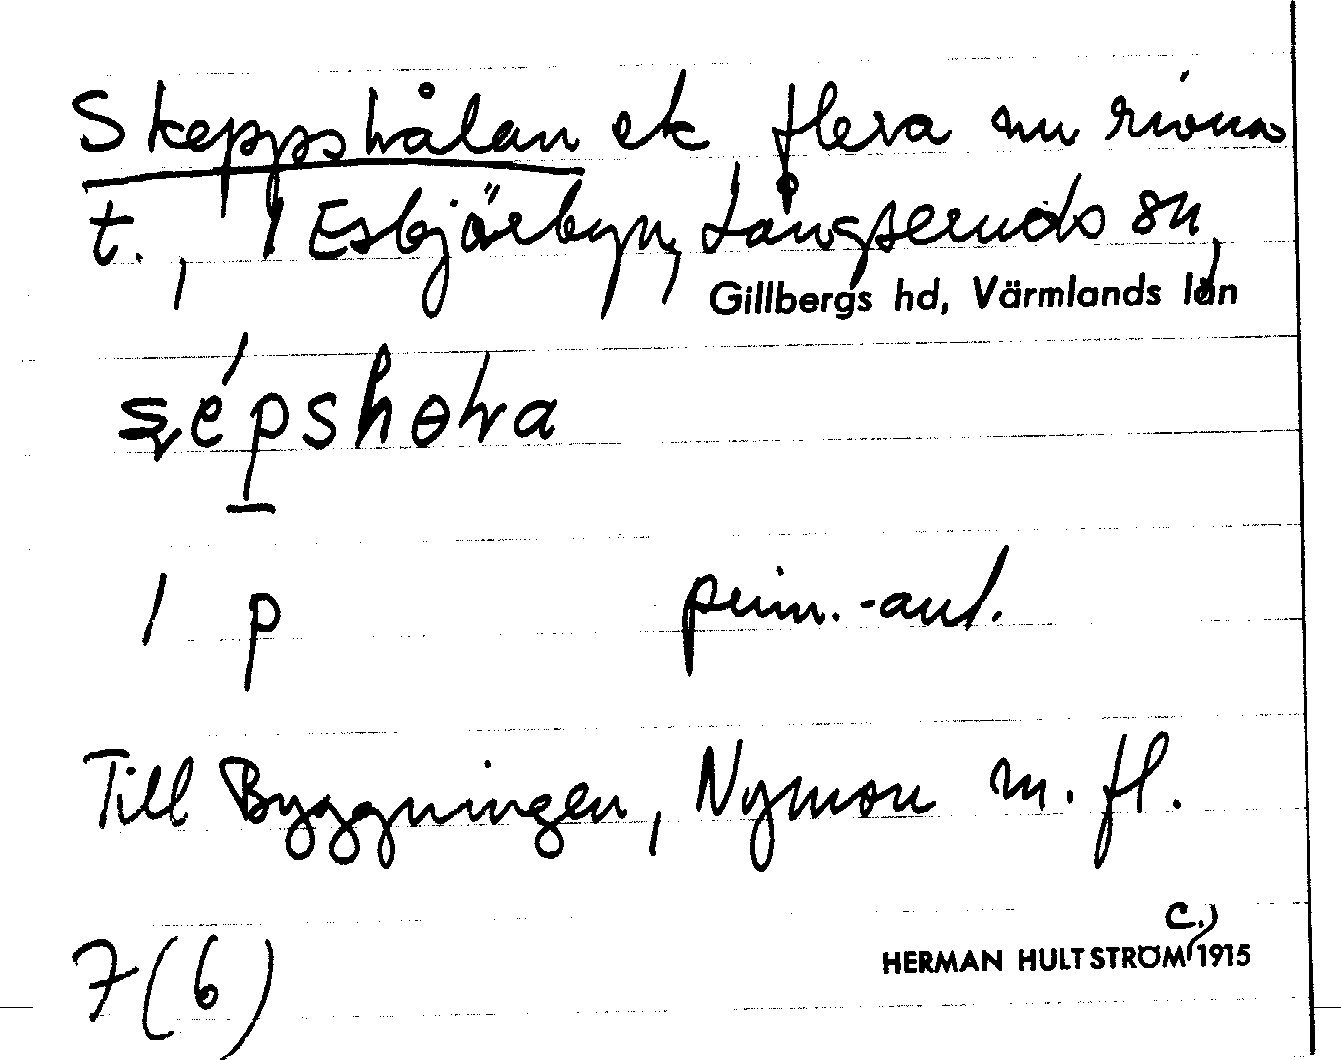 Skeppshålan ek flera nu rivna
t., i Esbjörbyn, Långseruds sn,
Gillbergs hd, Värmlands län
prim. -ant.
Till Byggningen, Nymon m. fl.
7 (6)
c.
HERMAN HULTSTRÖM 1915